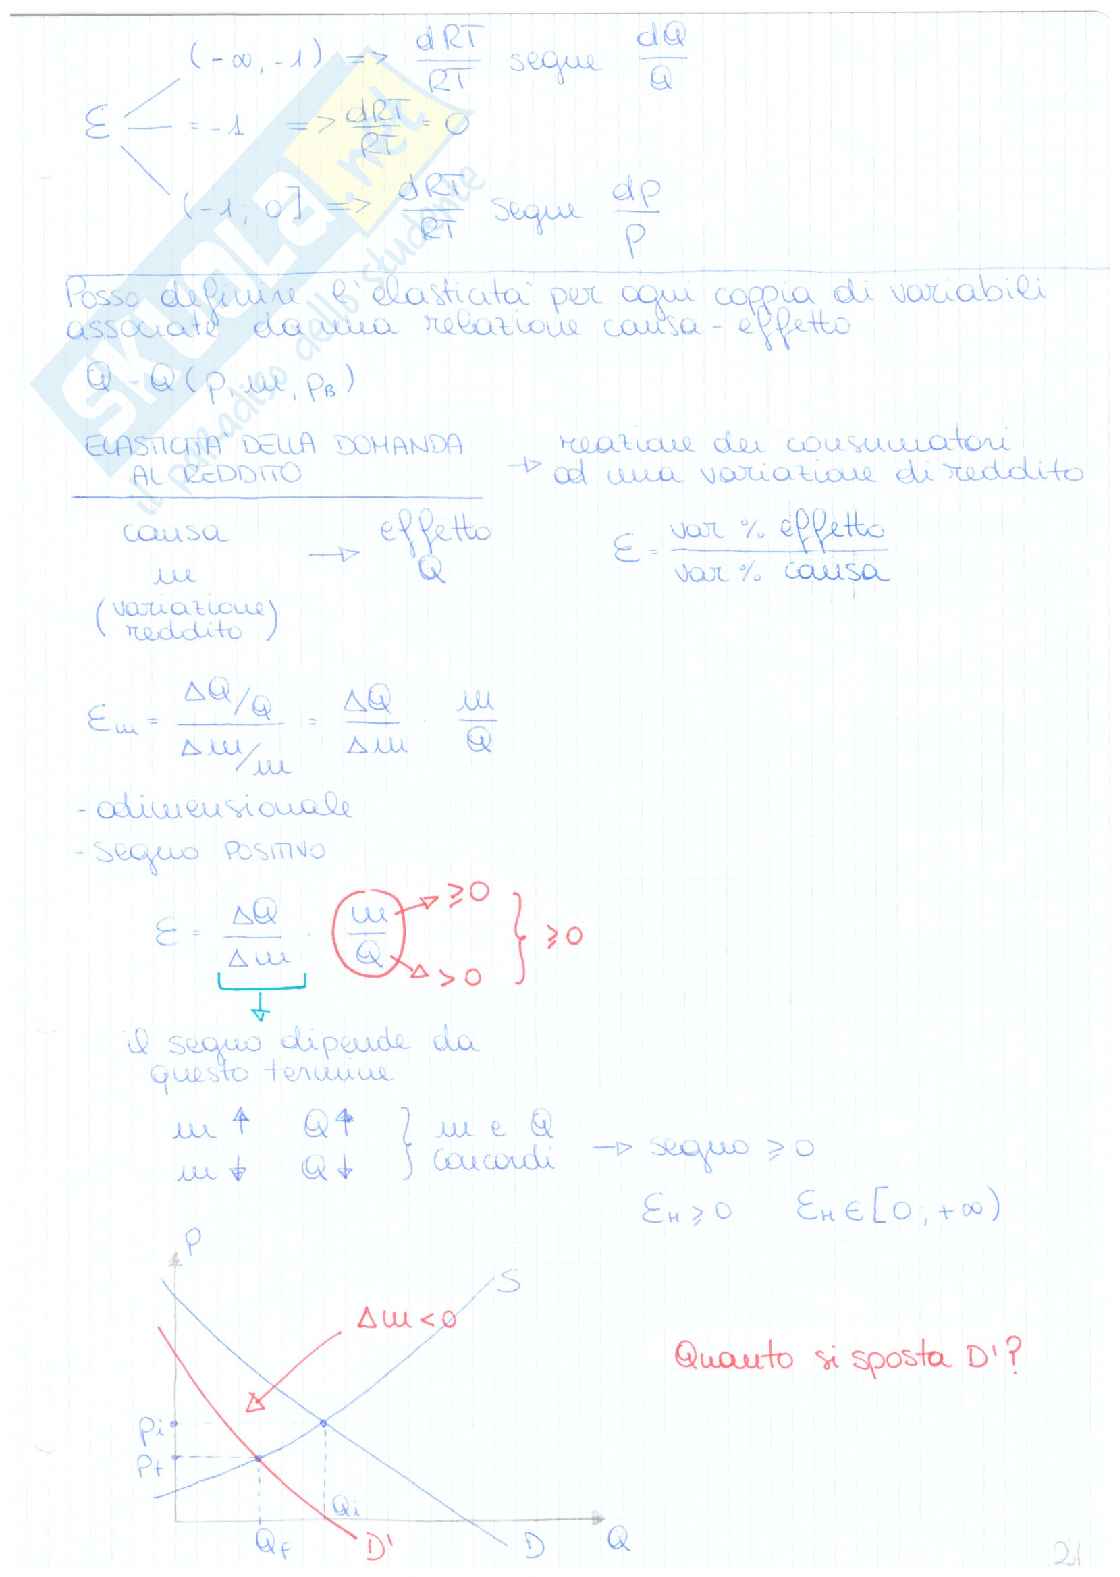 (-∞, -1) => dRT/RT segue dQ/Q
ε = -1 => dRT/RT = 0
(-1, 0] => dRT/RT segue dp/p
Posso definire l'elasticità per ogni coppia di variabili
associate da una relazione causa-effetto
Q = Q(p, m, pB)
ELASTICITA' DELLA DOMANDA
AL REDDITO
→ reazione dei consumatori
ad una variazione di reddito
causa → effetto
m Q
(variazione
reddito)
ε = var % effetto / var % causa
εm = ΔQ/Q / Δm/m = ΔQ/Δm · m/Q
- adimensionale
- segno POSITIVO
ε = ΔQ/Δm · m/Q → ≥0 → >0 } ≥0
il segno dipende da
questo termine
m ↑ Q ↑ } m e Q
m ↓ Q ↓ concordi → segno ≥ 0
εM ≥ 0 εM ∈ [0; +∞)
P
S
Δm < 0
Quanto si sposta D'?
Pi
Pf
Qi
Qf
D'
D
Q
21
SKUOLA.net
il paradiso dello studente